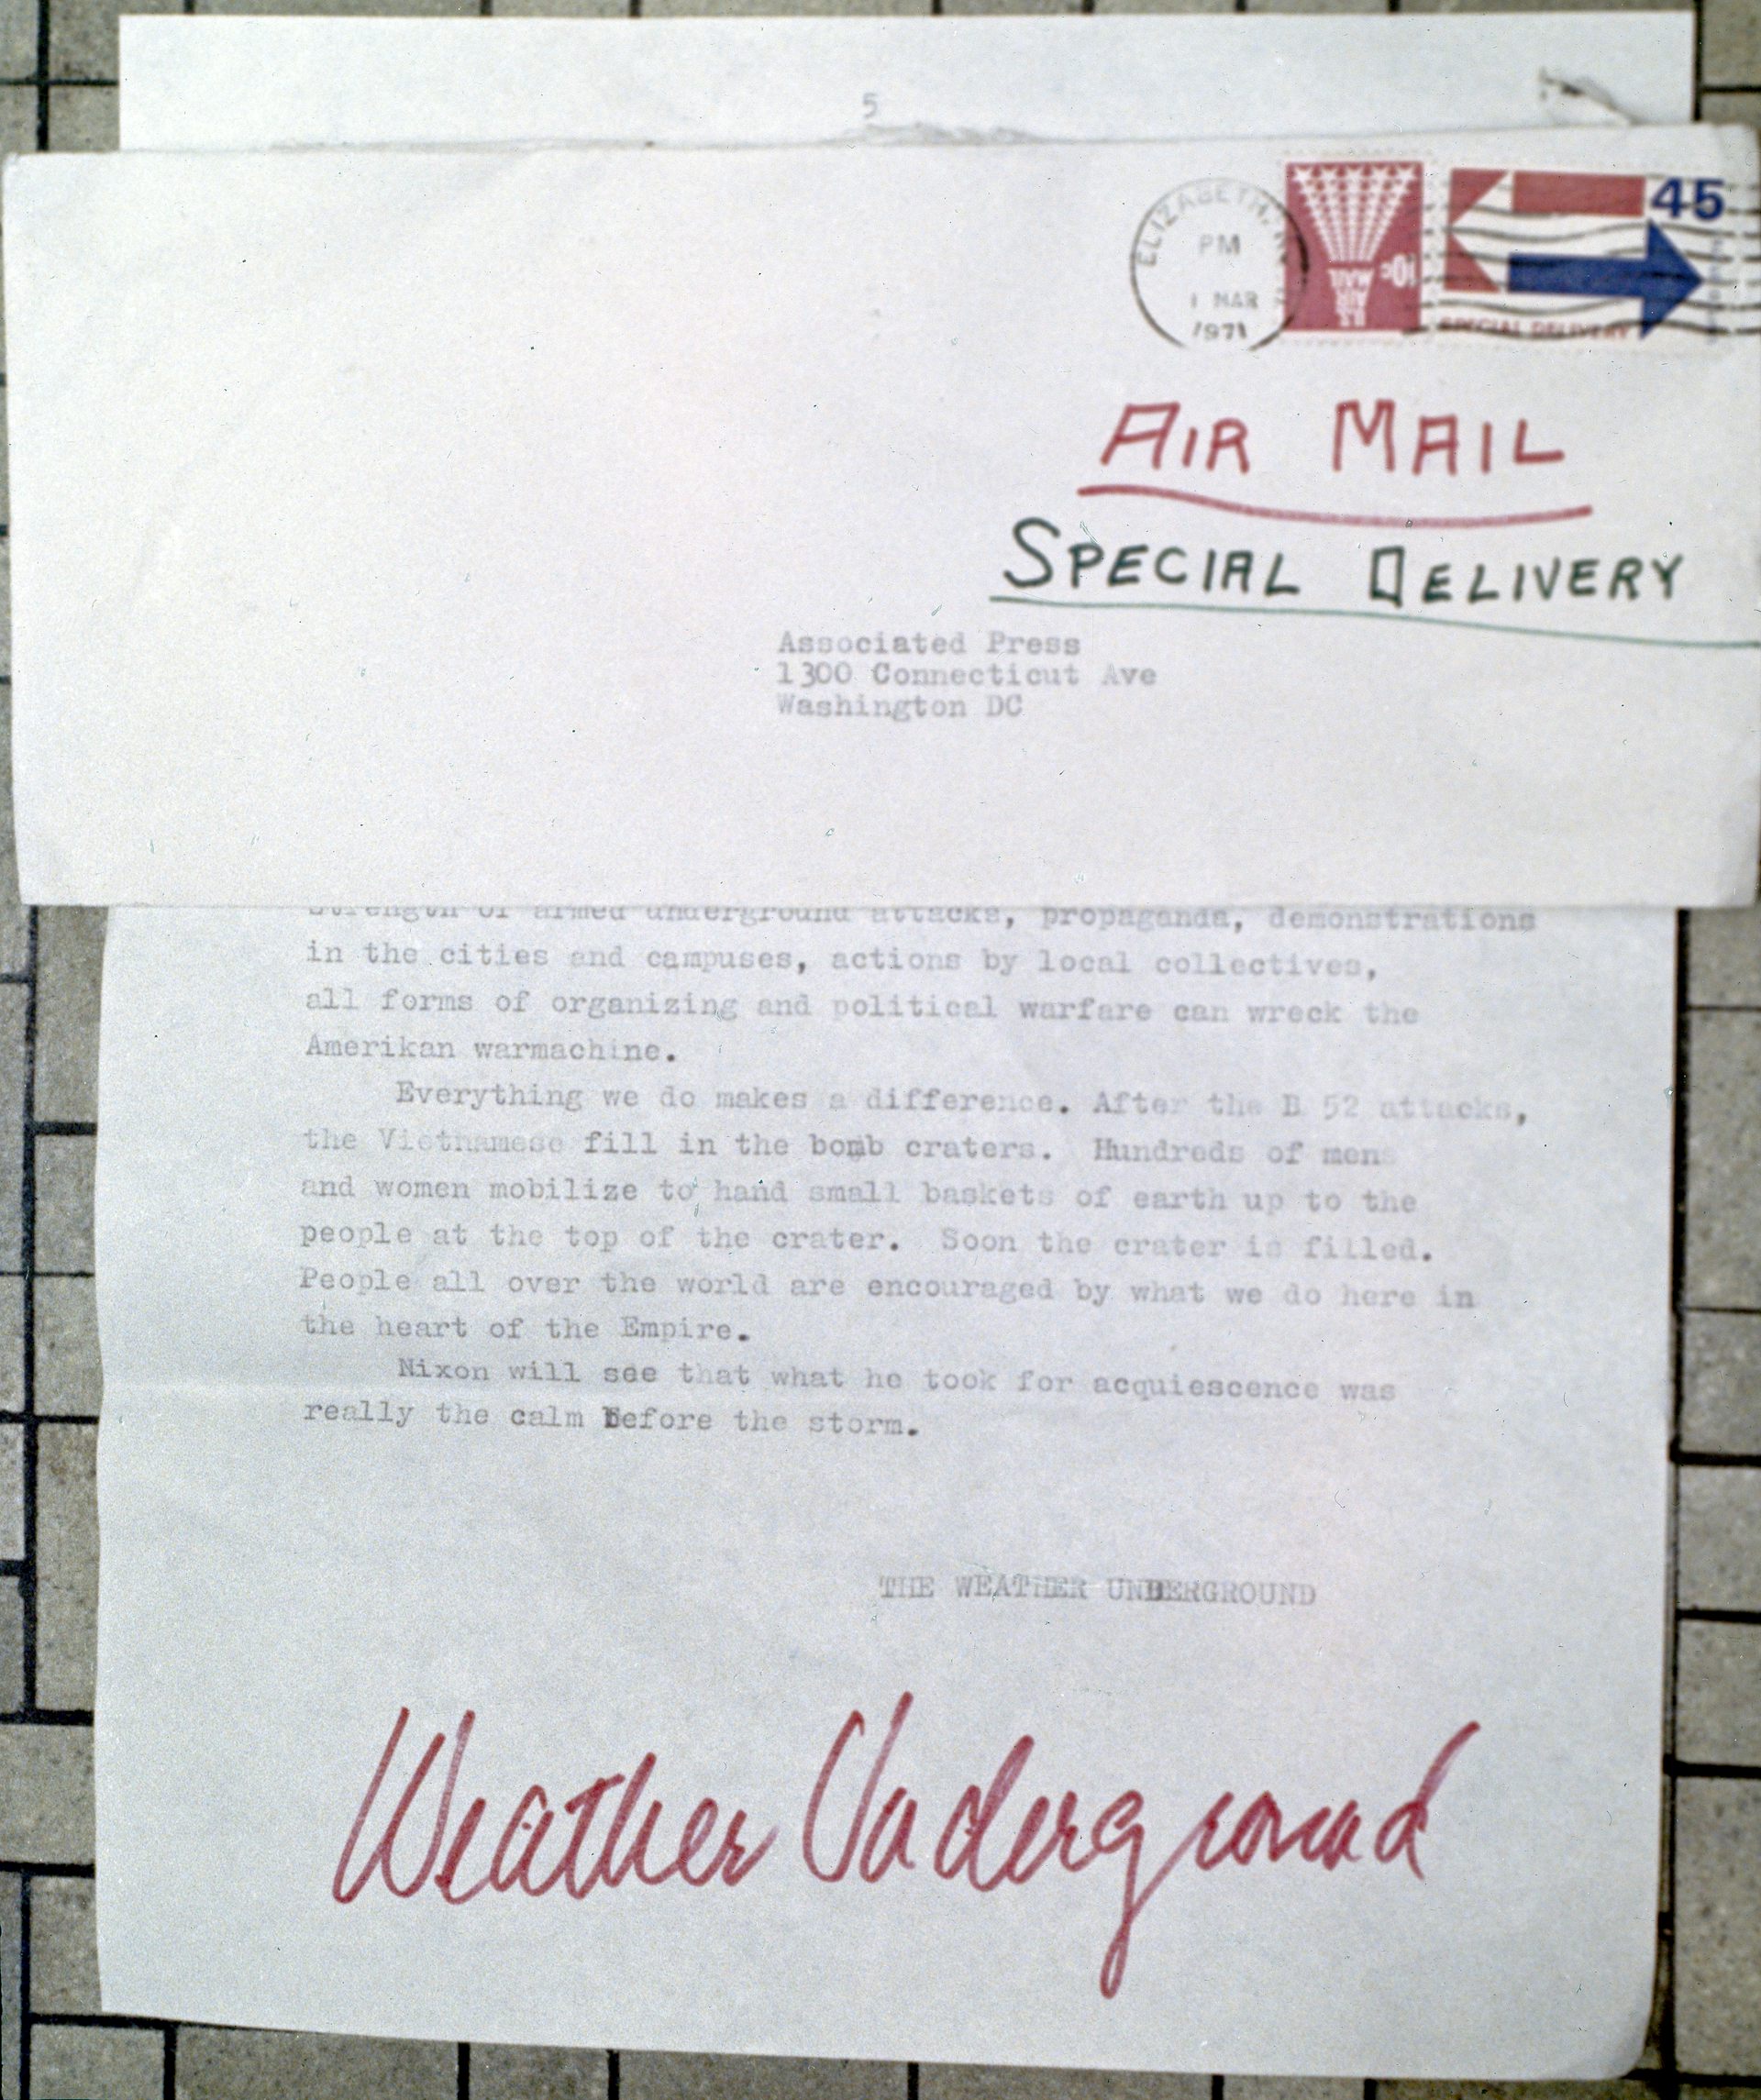 5
ELIZABETH, N
PM
1 MAR
1971
U.S.
AIR
MAIL
10c
45
SPECIAL DELIVERY
AIR MAIL
SPECIAL DELIVERY
Associated Press
1300 Connecticut Ave
Washington DC
strength of armed underground attacks, propaganda, demonstrations
in the cities and campuses, actions by local collectives,
all forms of organizing and political warfare can wreck the
Amerikan warmachine.
Everything we do makes a difference. After the B 52 attacks,
the Vietnamese fill in the bomb craters. Hundreds of mens
and women mobilize to hand small baskets of earth up to the
people at the top of the crater. Soon the crater is filled.
People all over the world are encouraged by what we do here in
the heart of the Empire.
Nixon will see that what he took for acquiescence was
really the calm before the storm.
THE WEATHER UNDERGROUND
Weather Underground